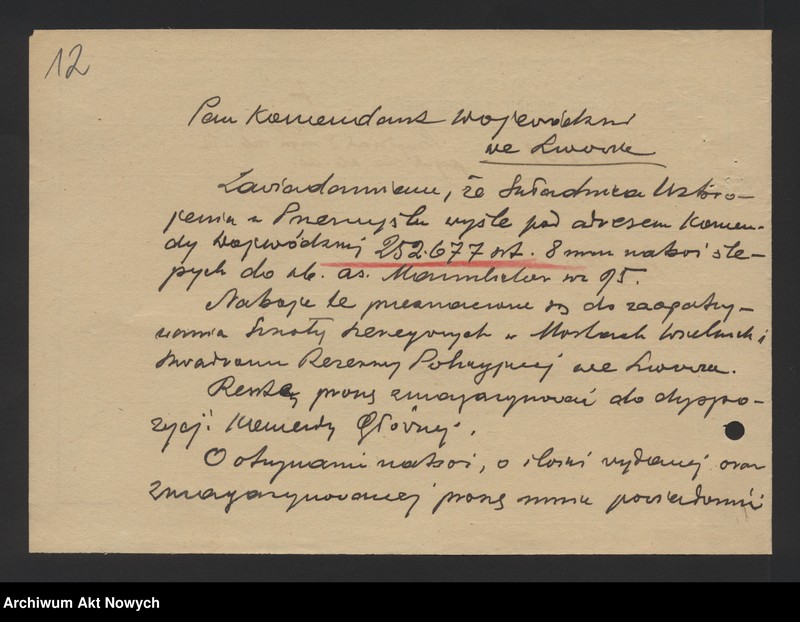 12
Pan Komendant Wojewódzki
we Lwowie
Zawiadamiam, że Składnica Uzbro-
jenia w Przemyślu wyśle pod adresem Komen-
dy Wojewódzkiej 252.677 szt. 8 mm naboi śle-
pych do kb. as. Mannlicher wz 95.
Naboje te przeznaczone są do zaopatry-
wania Szkoły Szeregowych w Mostach Wielkich i
Szwadronu Rezerwy Policyjnej we Lwowie.
Resztę proszę zmagazynować do dyspo-
zycji Komendy Głównej.
O otrzymaniu naboi, o ilości wydanej oraz
zmagazynowanej proszę mnie powiadomić
Archiwum Akt Nowych